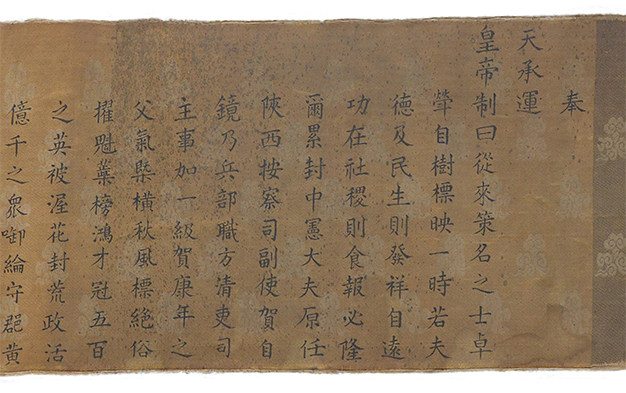 奉
天承運
皇帝制曰從來策名之士卓
犖自樹標映一時若夫
德及民生則發祥自遠
功在社稷則食報必隆
爾累封中憲大夫原任
陝西按察司副使賀自
鏡乃兵部職方清吏司
主事加一級賀康年之
父氣槩橫秋風標絕俗
擢魁蘂榜鴻才冠五百
之英被渥花封荒政活
億千之眾啣綸守郡黃